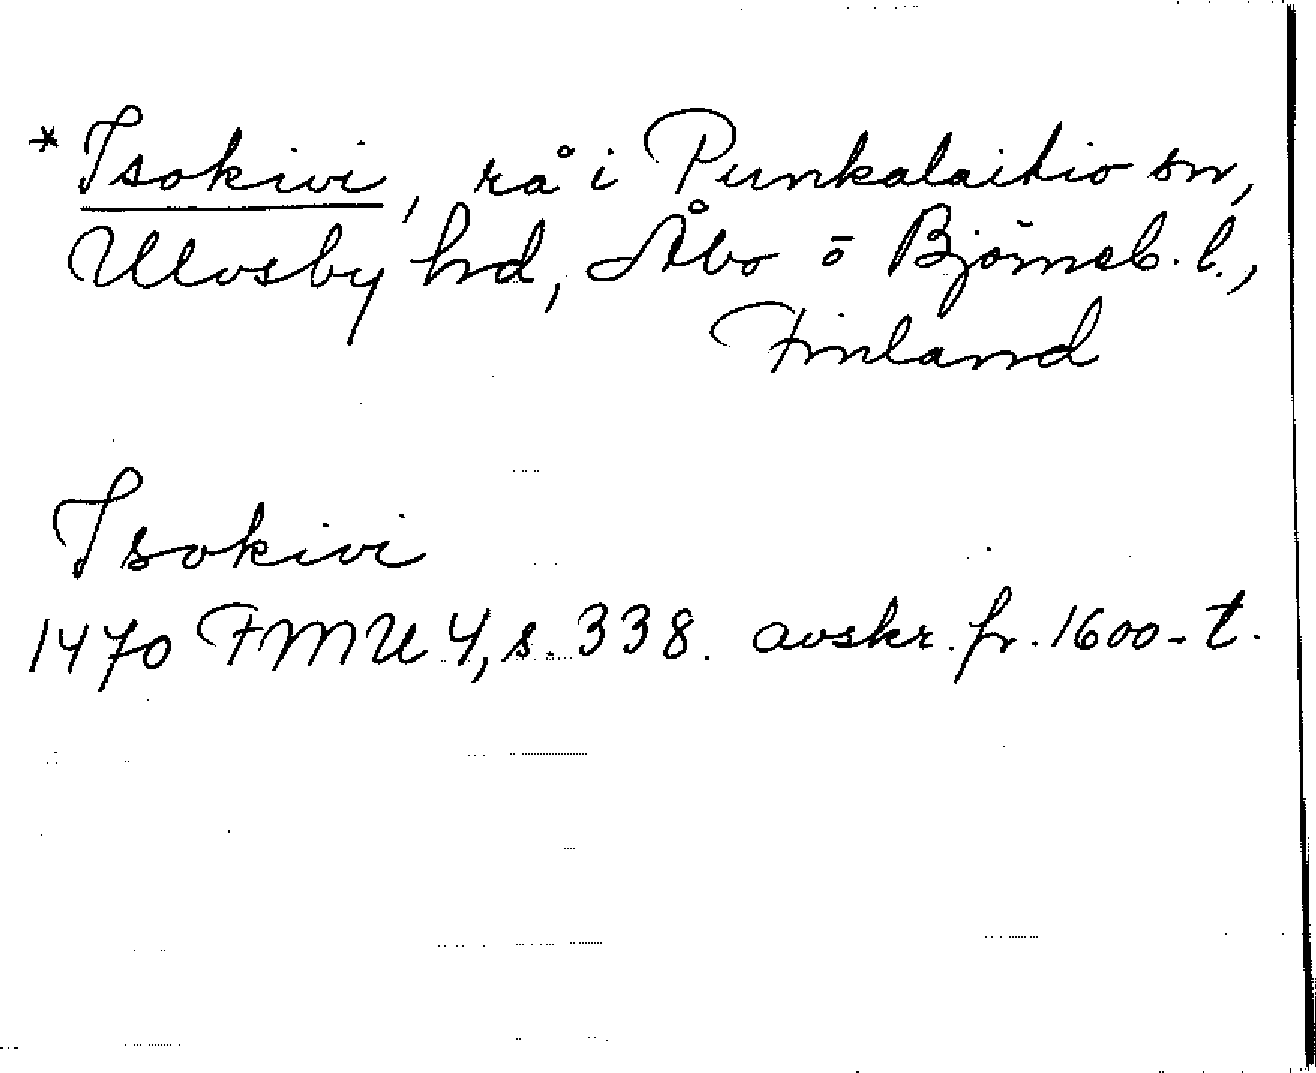 * Isokivi, rå i Punkalaitio sn,
Ulvsby hd, Åbo o Björneb. l.,
Finland
Isokivi
1470 FMU 4, s. 338. avskr. fr. 1600-t.